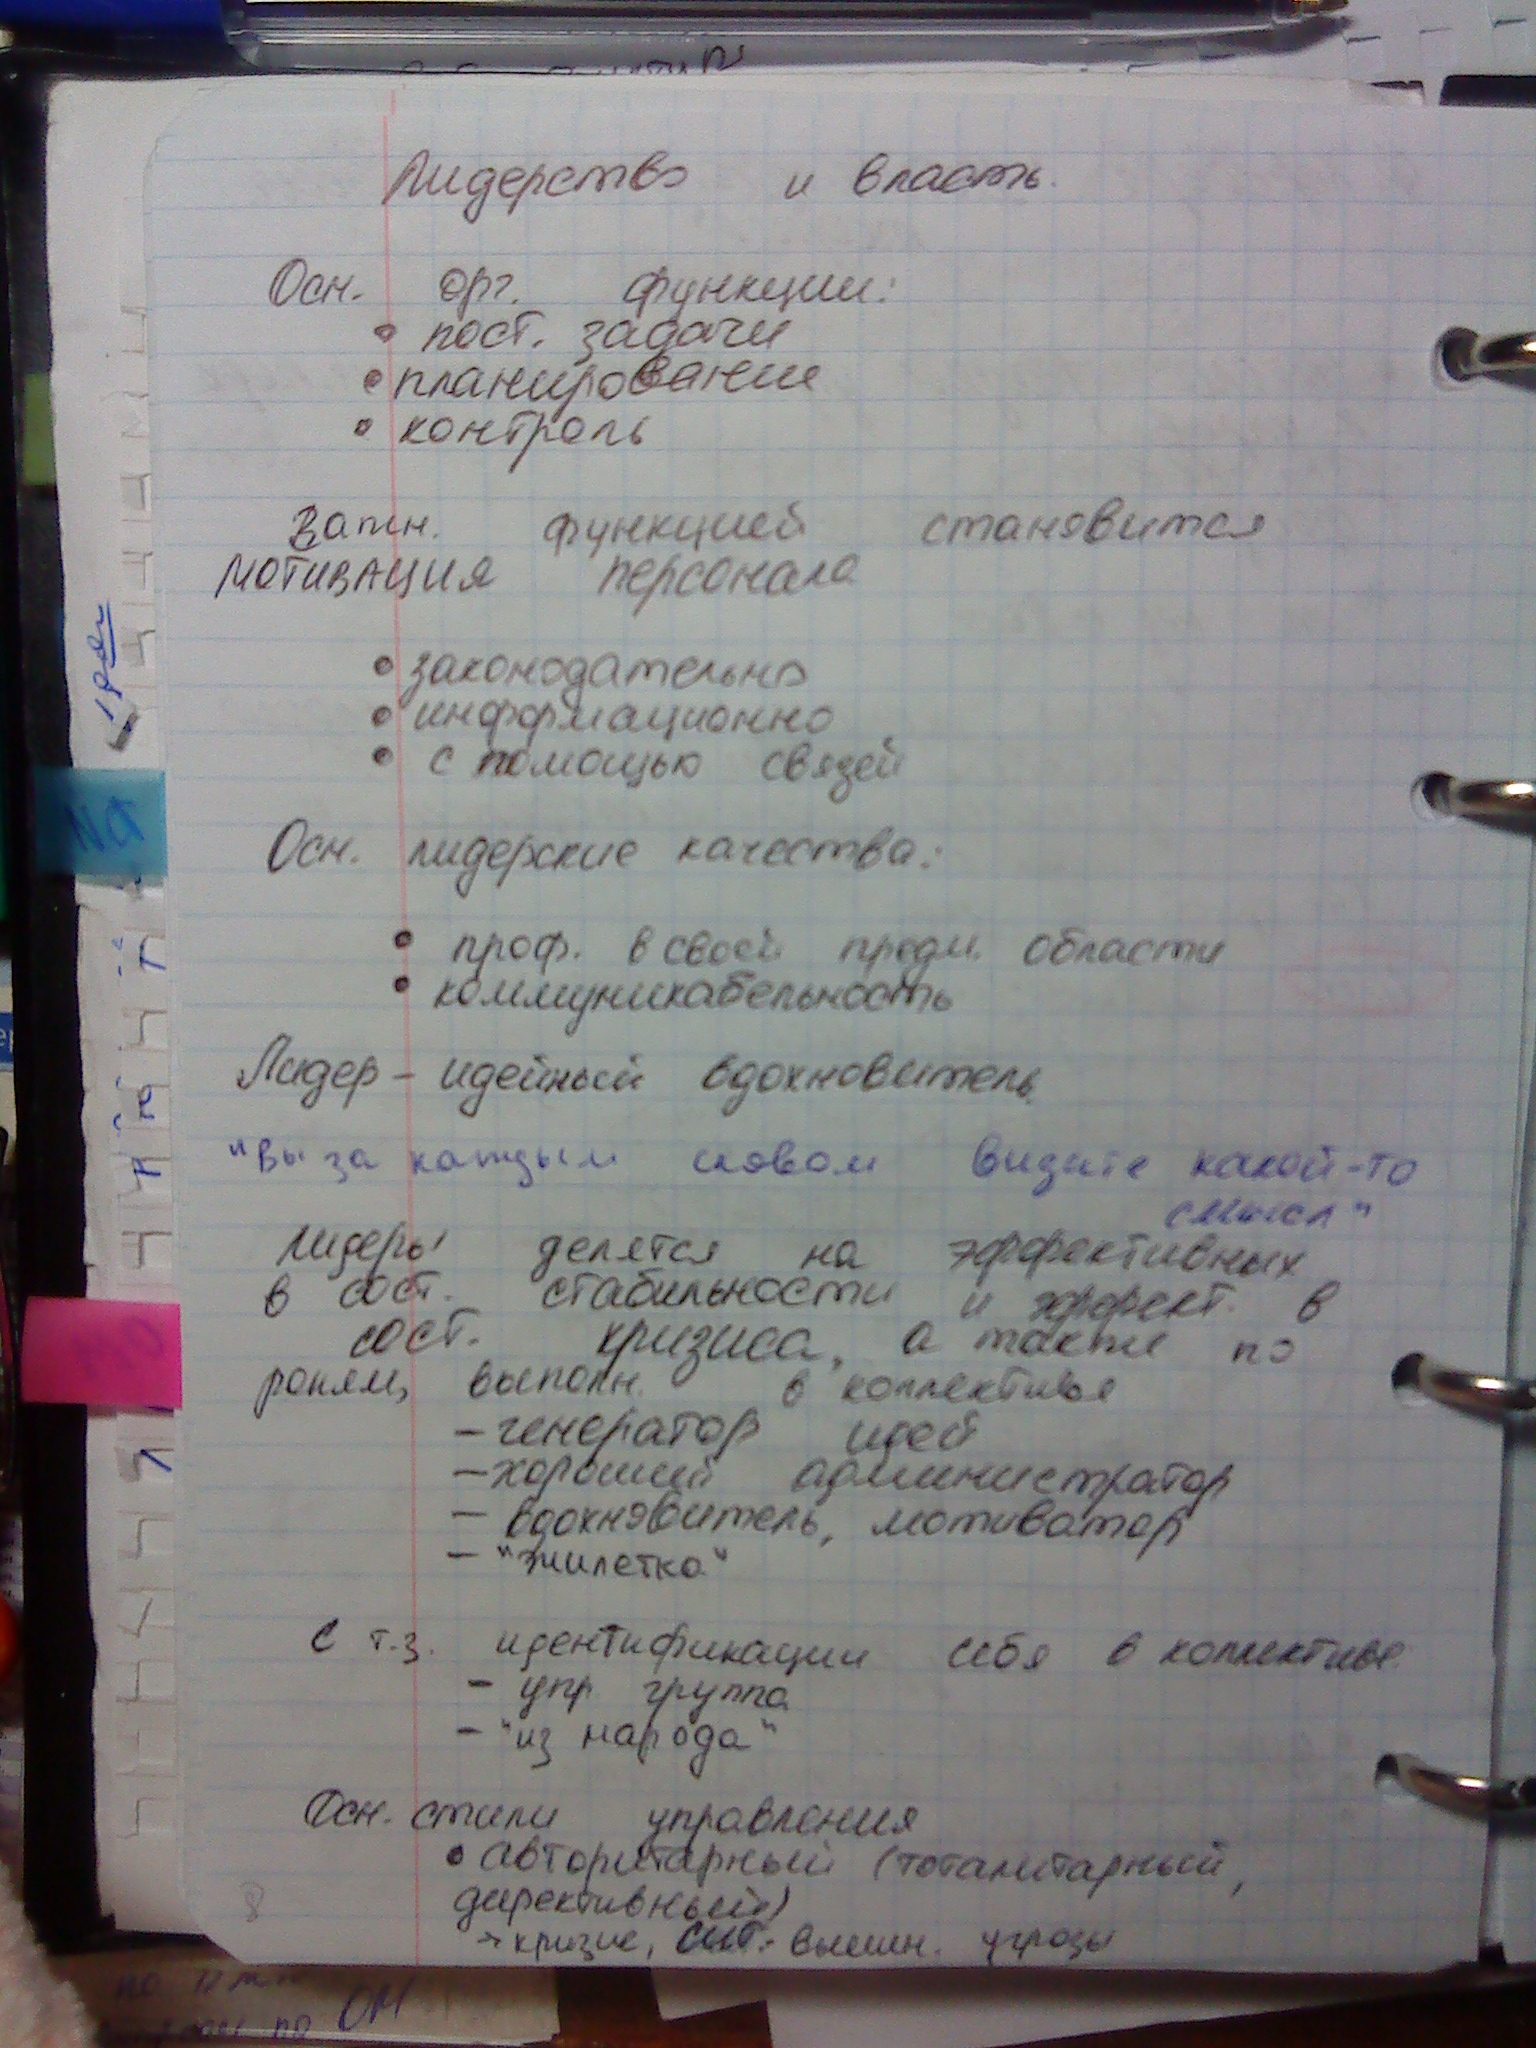 Лидерство и власть.
Осн. орг. функции:
• пост. задачи
• планирование
• контроль
Важн. функцией становится
мотивация персонала
• законодательно
• информационно
• с помощью связей
Осн. лидерские качества:
• проф. в своей предм. области
• коммуникабельность
Лидер – идейный вдохновитель.
"Вы за каждым словом видите какой-то
смысл"
Лидеры делятся на эффективных
в сост. стабильности и эффект. в
сост. кризиса, а также по
ролям, выполн. в коллективе
– генератор идей
– хороший администратор
– вдохновитель, мотиватор
– "жилетка"
С т.з. идентификации себя в коллективе
– упр группа
– "из народа"
Осн. стили управления
• авторитарный (тоталитарный,
директивный)
→ кризис, сит. внешн. угрозы
8
по ОМ